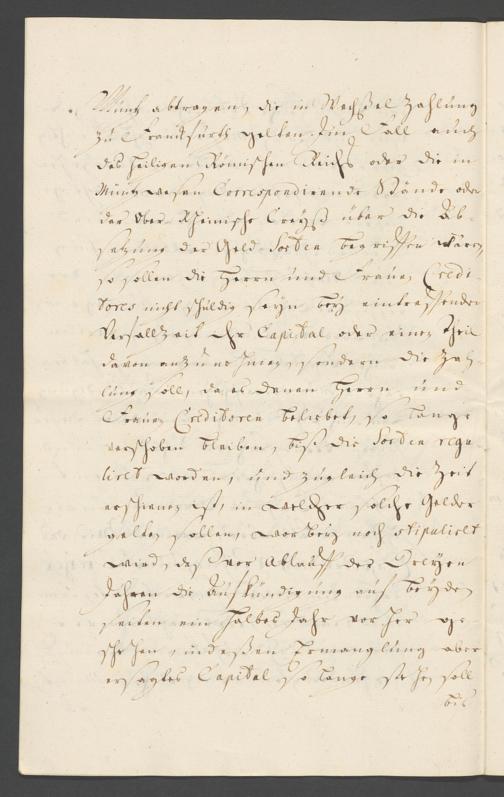 Müntz abtragen, die in Wechßel Zahlung
zu Franckfurth gelten. Im Fall auch
des heiligen Römischen Reichs oder die in
Müntz weesen Correspondirende Stände oder
der Ober Rheinische Creyß über die Ab-
setzung der Geld Sorten begriffen wären,
so sollen die Herrn und Frauen Credi-
tores nicht schuldig seyn bey eintreffender
Verfallzeit Ihr Capital oder einen Theil
davon anzunehmen, sondern die Zah-
lung soll, da es denen Herrn und
Frauen Creditoren beliebet, so lange
verschoben bleiben, biß die Sorten regu-
liret worden, und zugleich die Zeit
erschienen ist, in welcher solche Gelder
gelten sollen, worbey noch stipuliret
wird, daß vor Ablauff der Dreyen
Jahren die Aufkündigung auf beyden
seiten ein halbes Jahr vorher ge-
schehen, in deßen Ermanglung aber
ersagtes Capital so lange stehen soll
bis